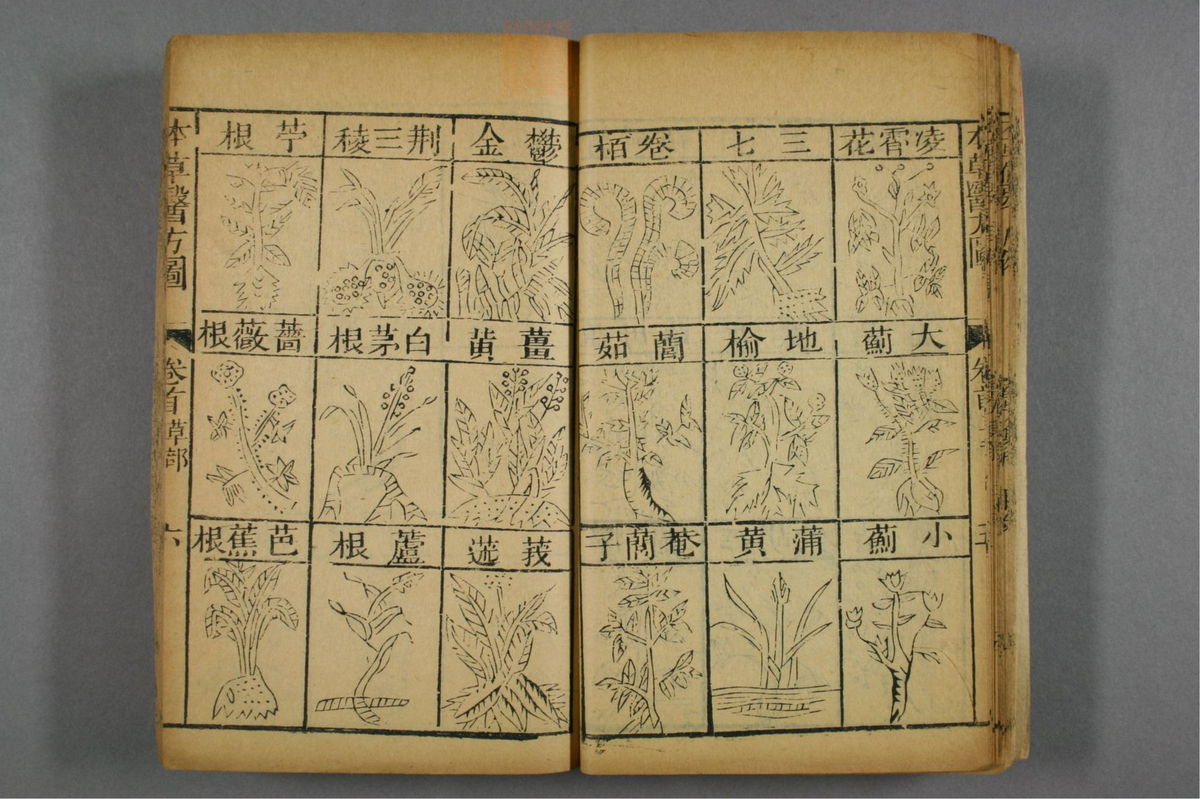 本草醫方圖
凌霄花
三七
卷栢
大薊
地榆
䕡茹
小薊
蒲黄
菴䕡子
鬱金
荆三稜
苧根
薑黄
白茅根
薔薇根
莪蒁
蘆根
芭蕉根
本草醫方圖 卷首草部 六